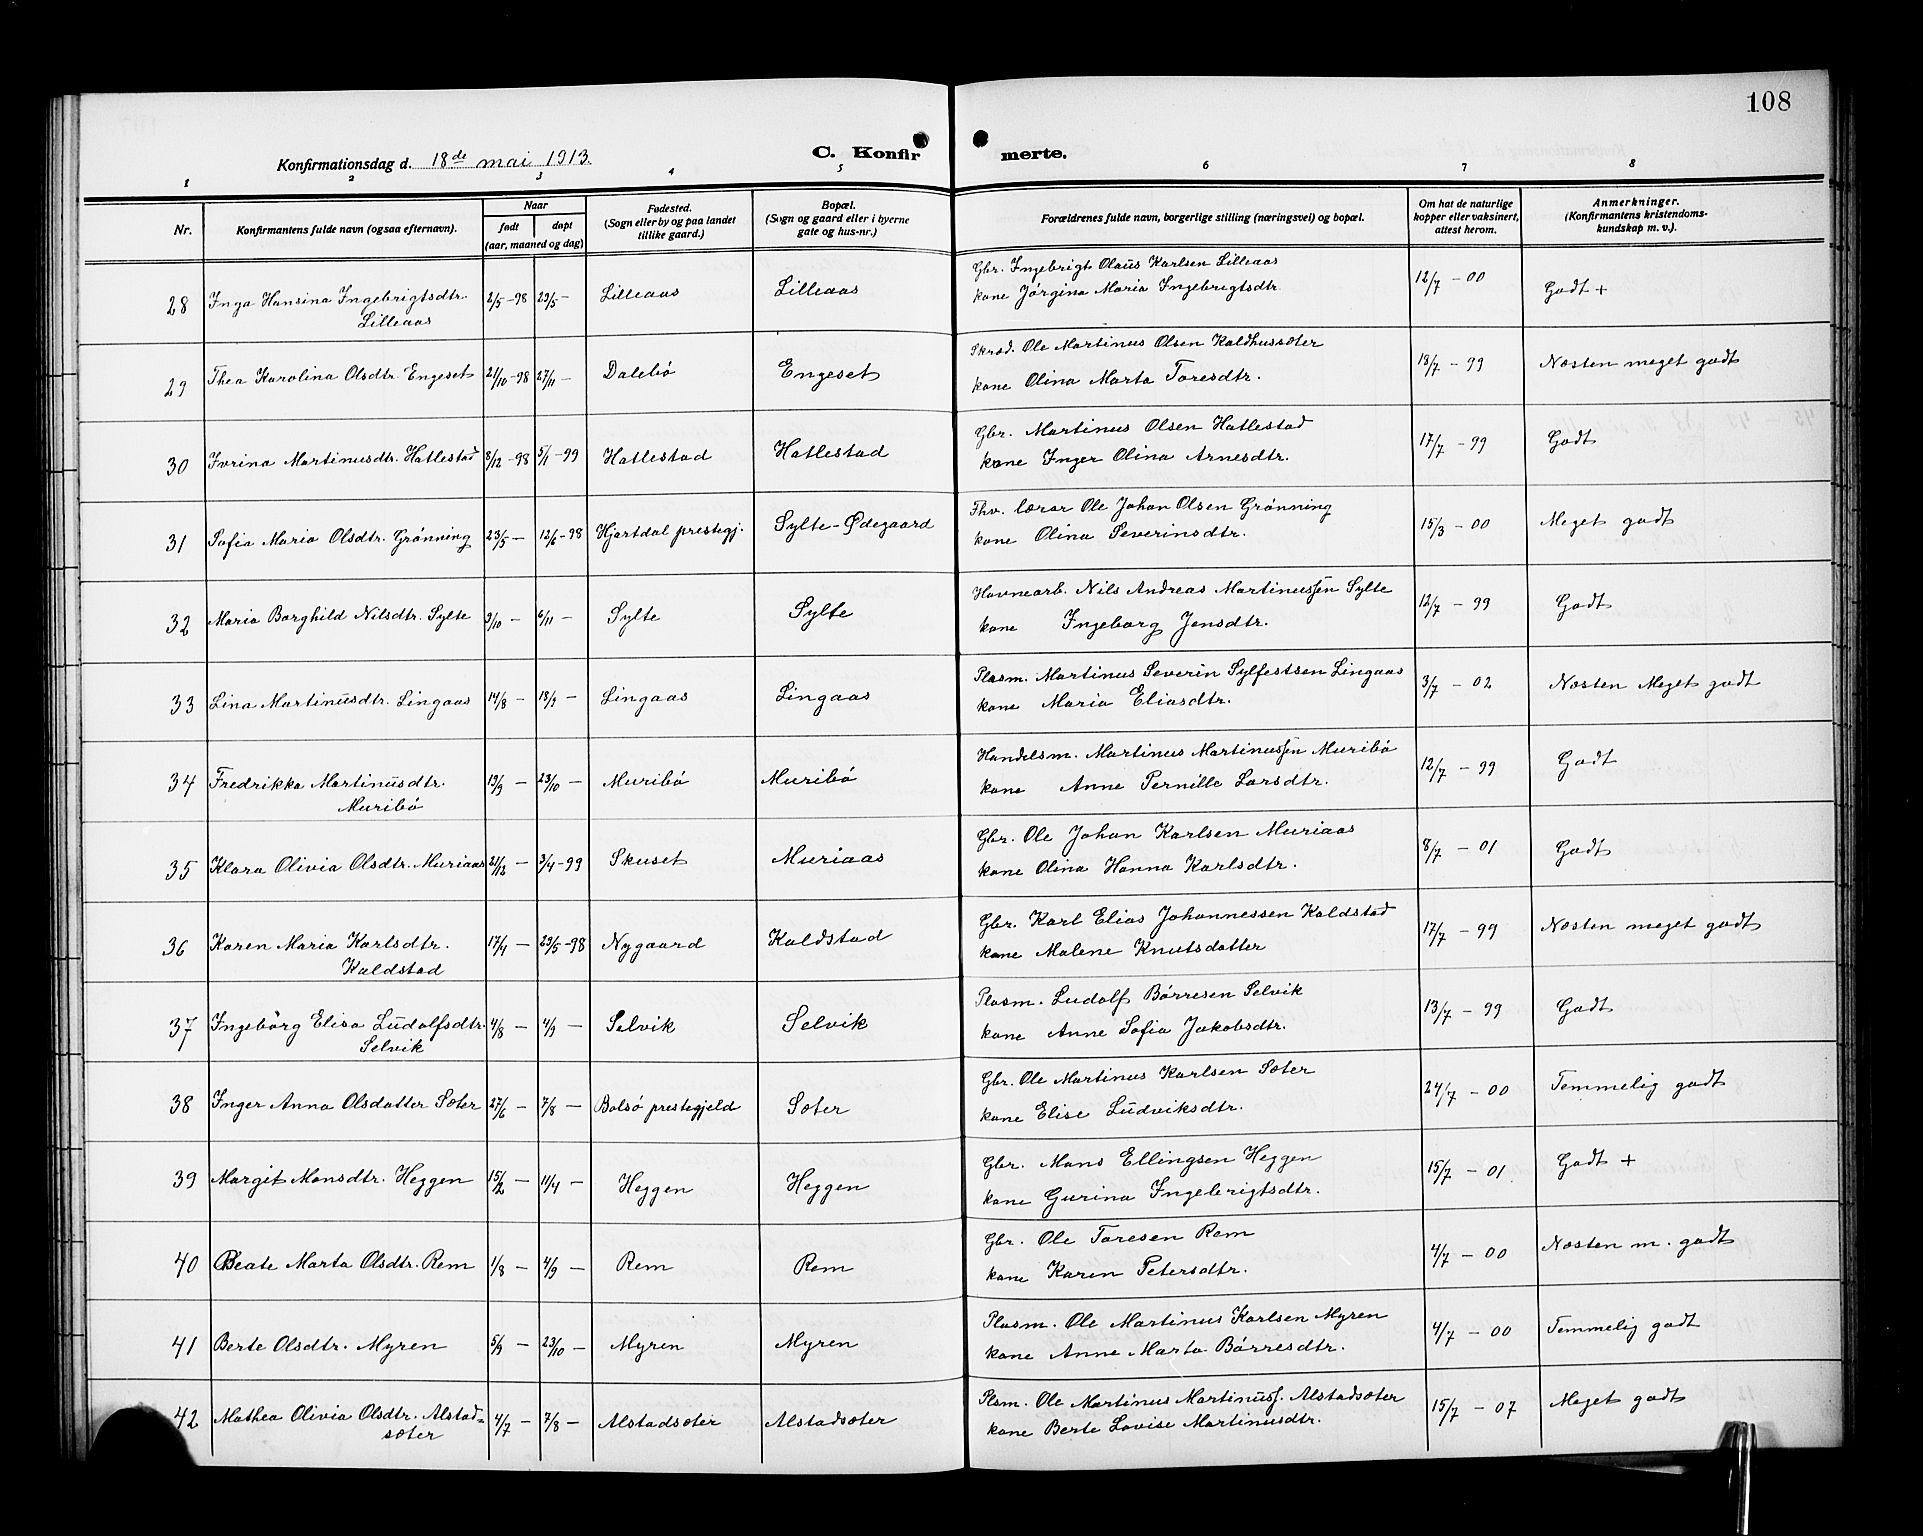 108
Konfirmationsdag d. 18de mai 1913.
C. Konfirmerte.
1 2 3 4 5 6 7 8
Nr. | Konfirmantens fulde navn (ogsaa efternavn). | Naar født døpt (aar, maaned og dag) | Fødested. (Sogn eller by og paa landet tillike gaard.) | Bopæl. (Sogn og gaard eller i byerne gate og hus-nr.) | Forældrenes fulde navn, borgerlige stilling (næringsvei) og bopæl. | Om hat de naturlige kopper eller vaksinert, attest herom. | Anmerkninger. (Konfirmantens kristendomskundskap m. v.).
28 Inga Hansina Ingebrigtsdtr. Lilleaas 2/5-98 29/5- Lilleaas Lilleaas Gbr. Ingebrigt Olaus Karlsen Lilleaas
kone Jørgina Maria Ingebrigtsdtr. 12/7 - 00 Godt +
29 Thea Karolina Olsdtr. Engeset 21/10-98 27/11 - Dalebø Engeset Skræd. Ole Martinus Olsen Kaldhussæter
kone Olina Marta Toresdtr. 18/7 - 99 Næsten meget godt
30 Ivrina Martinusdtr. Hatlestad 8/12-98 5/1-99 Hatlestad Hatlestad Gbr. Martinus Olsen Hatlestad
kone Inger Olina Arnesdtr. 17/7 - 99 Godt
31 Sofia Maria Olsdtr. Grønning 23/5 - 12/6-98 Hjartdal prestegj. Sylte-Ødegaard Fhv. lærer Ole Johan Olsen Grønning
kone Olina Severinsdtr. 15/3 - 00 Meget godt
32 Maria Borghild Nilsdtr. Sylte 9/10 - 6/11 - Sylte Sylte Havnearb. Nils Andreas Martinussen Sylte
kone Ingeborg Jensdtr. 12/7 - 99 Godt
33 Lina Martinusdtr. Lingaas 14/8 - 18/9 - Lingaas Lingaas Plasm. Martinus Severin Sylfestsen Lingaas
kone Maria Eliasdtr. 3/7 - 02 Næsten Meget godt
34 Fredrikka Martinusdtr. Muribø 19/9 - 23/10 - Muribø Muribø Handelsm. Martinus Martinussen Muribø
kone Anne Pernille Larsdtr. 12/7 - 99 Godt
35 Klara Olivia Olsdtr. Muriaas 21/12 - 3/4-99 Skuset Muriaas Gbr. Ole Johan Karlsen Muriaas
kone Olina Hanna Karlsdtr. 8/7 - 01 Godt
36 Karen Maria Karlsdtr. Kaldstad 17/4 - 29/5-98 Nygaard Kaldstad Gbr. Karl Elias Johannessen Kaldstad
kone Malene Knutsdatter 17/7 - 99 Næsten meget godt
37 Ingeborg Elisa Ludolfsdtr. Selvik 4/8 - 4/9 - Selvik Selvik Plasm. Ludolf Børresen Selvik
kone Anne Sofia Jakobsdtr. 13/7 - 99 Godt
38 Inger Anna Olsdatter Sæter 27/6 - 7/8 - Bolsø prestegjeld Sæter Gbr. Ole Martinus Karlsen Sæter
kone Elise Ludviksdtr. 24/7 - 00 Temmelig godt
39 Margit Monsdtr. Heggen 15/2 - 11/4 - Heggen Heggen Gbr. Mons Ellingsen Heggen
kone Gurina Ingebrigtsdtr. 15/7 - 01 Godt +
40 Beate Marta Olsdtr. Rem 1/8 - 4/9 - Rem Rem Gbr. Ole Toresen Rem
kone Karen Petersdtr. 4/7 - 00 Næsten m. godt
41 Berte Olsdtr. Myren 5/9 - 23/10 - Myren Myren Plasm. Ole Martinus Karlsen Myren
kone Anne Marta Børresdtr. 4/7 - 00 Temmelig godt
42 Mathea Olivia Olsdtr. Alstadsæter 4/7 - 7/8 - Alstadsæter Alstadsæter Plsm. Ole Martinus Martinuss. Alstadsæter
kone Berte Lovise Martinusdtr. 15/7 - 07 Meget godt